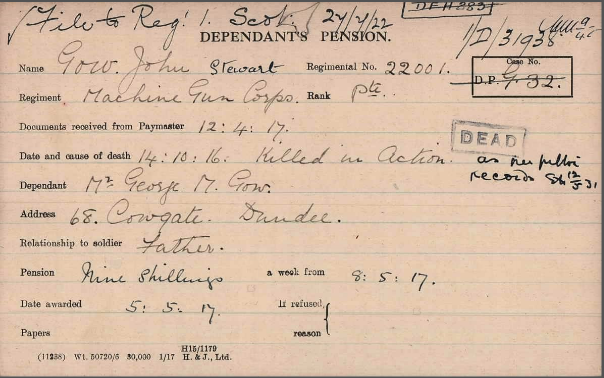 File to Reg! 1. Scot. 24/7/22
DEPENDANT'S PENSION.
1/D/31938
Name Gow. John Stewart Regimental No. 22001.
Case No.
D.P. G. 32.
Regiment Machine Gun Corps. Rank Pte.
Documents received from Paymaster 12:4:17.
DEAD
Date and cause of death 14:10:16. Killed in Action.
as per
records
Dependant Mr George M. Gow.
Address 68. Cowgate. Dundee.
Relationship to soldier Father.
Pension Nine Shillings a week from 8:5:17.
Date awarded 5:5.17. If refused,
Papers reason
H15/1179
(11238) Wt. 50720/6 30,000 1/17 H. & J., Ltd.